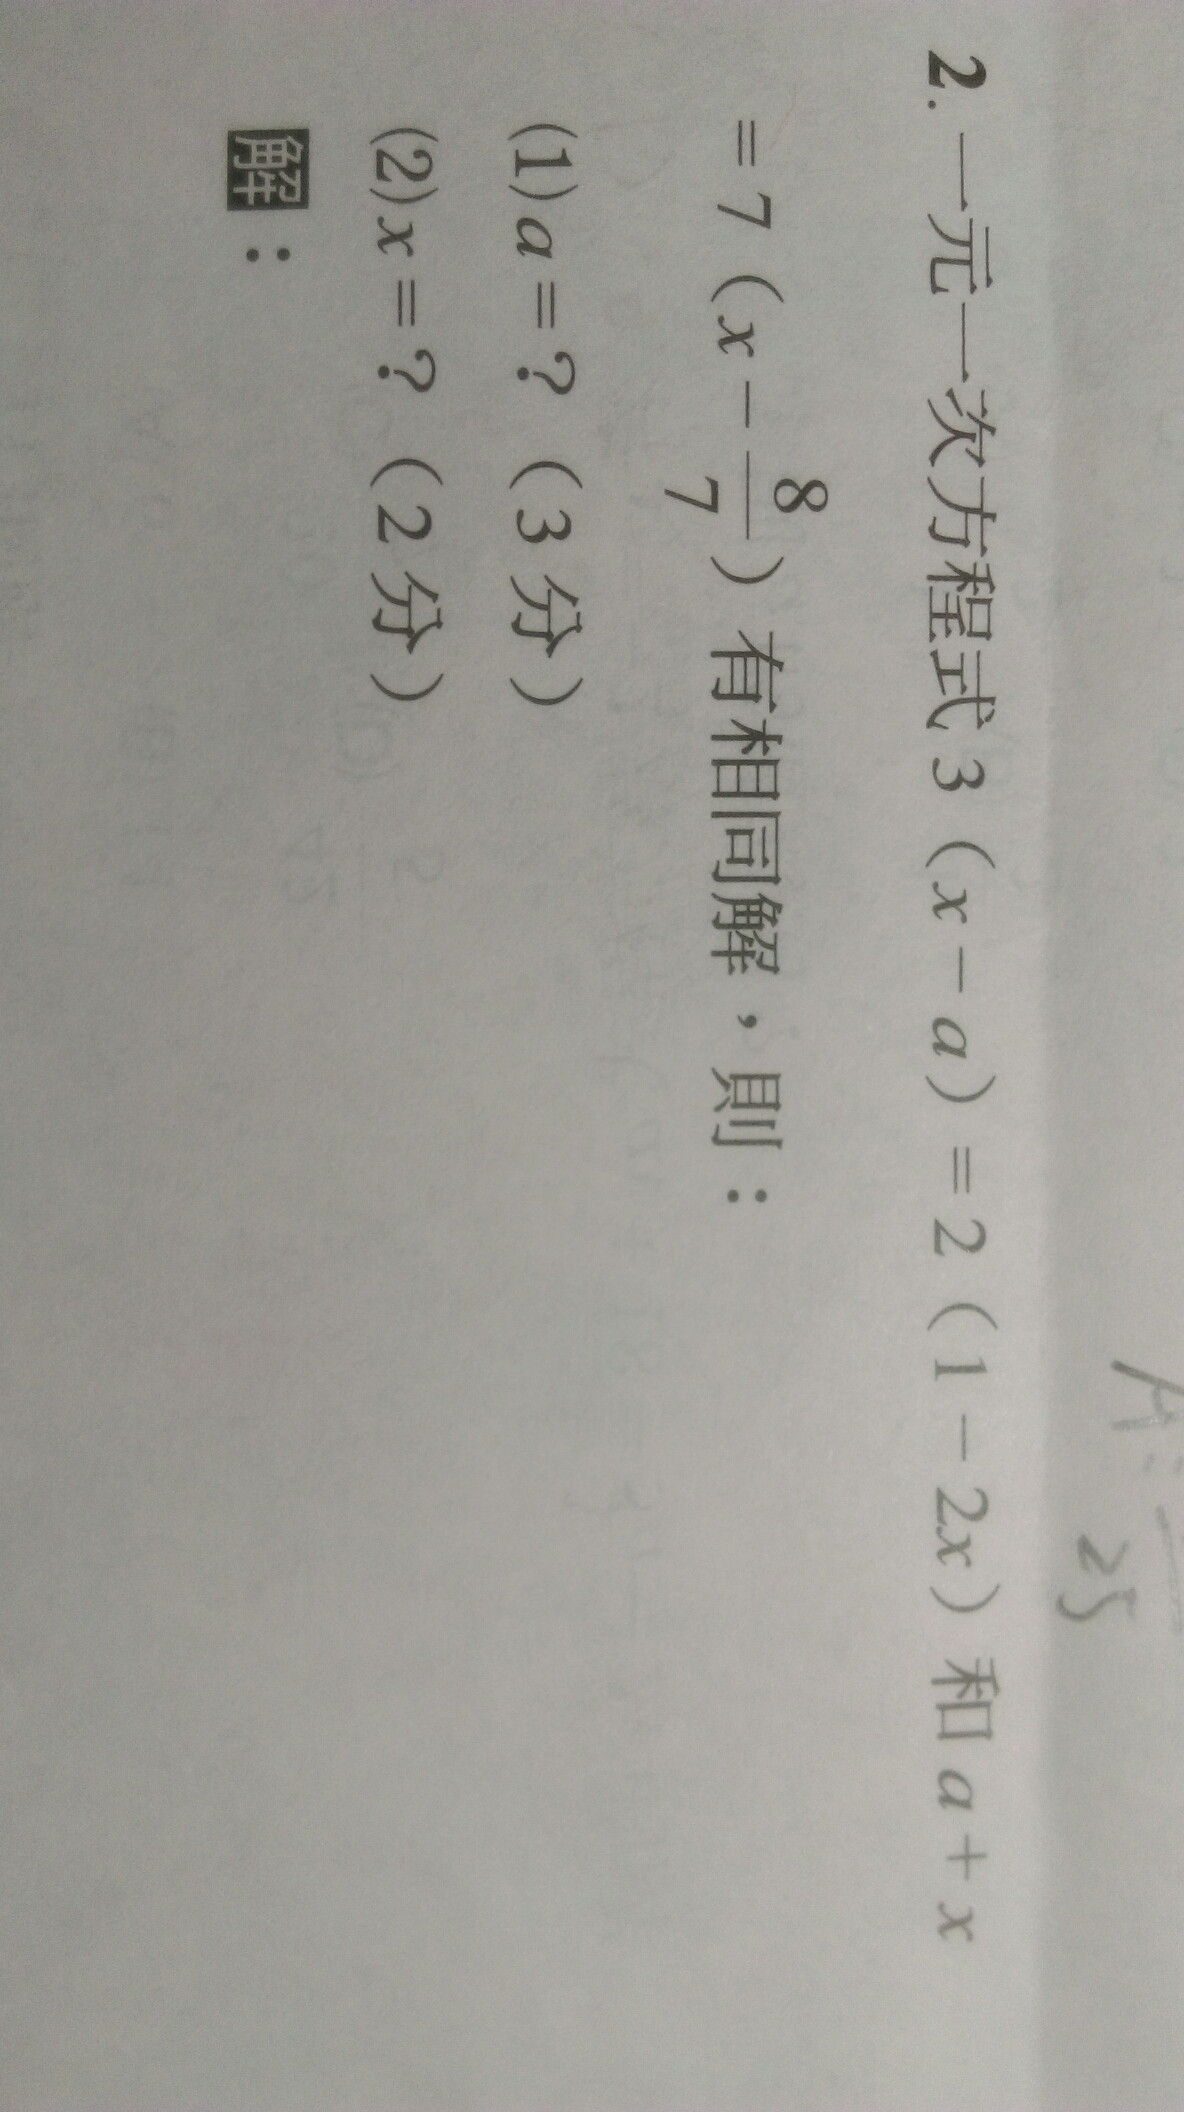 2. 一元一次方程式 3（x－a）＝2（1－2x）和 a＋x
＝7（x－8/7）有相同解，則：
(1) a＝？（3 分）
(2) x＝？（2 分）
解：
25